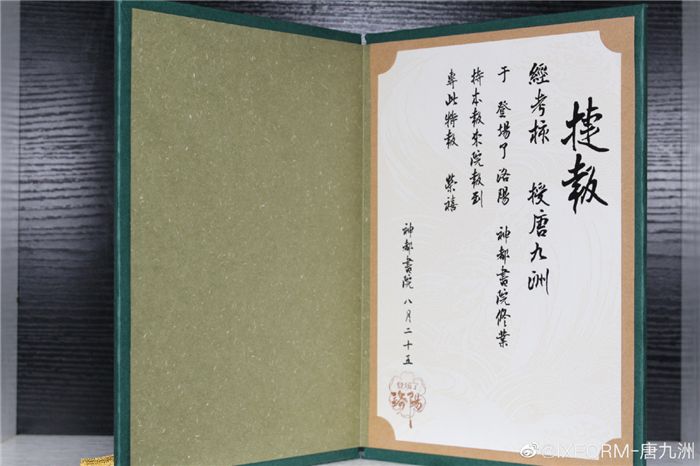 捷報
經考核 授唐九洲
于 登場了洛陽 神都書院修業
持本報來院報到
專此特報 榮禧
神都書院 八月二十五
登場了
洛陽
@IXFORM-唐九洲